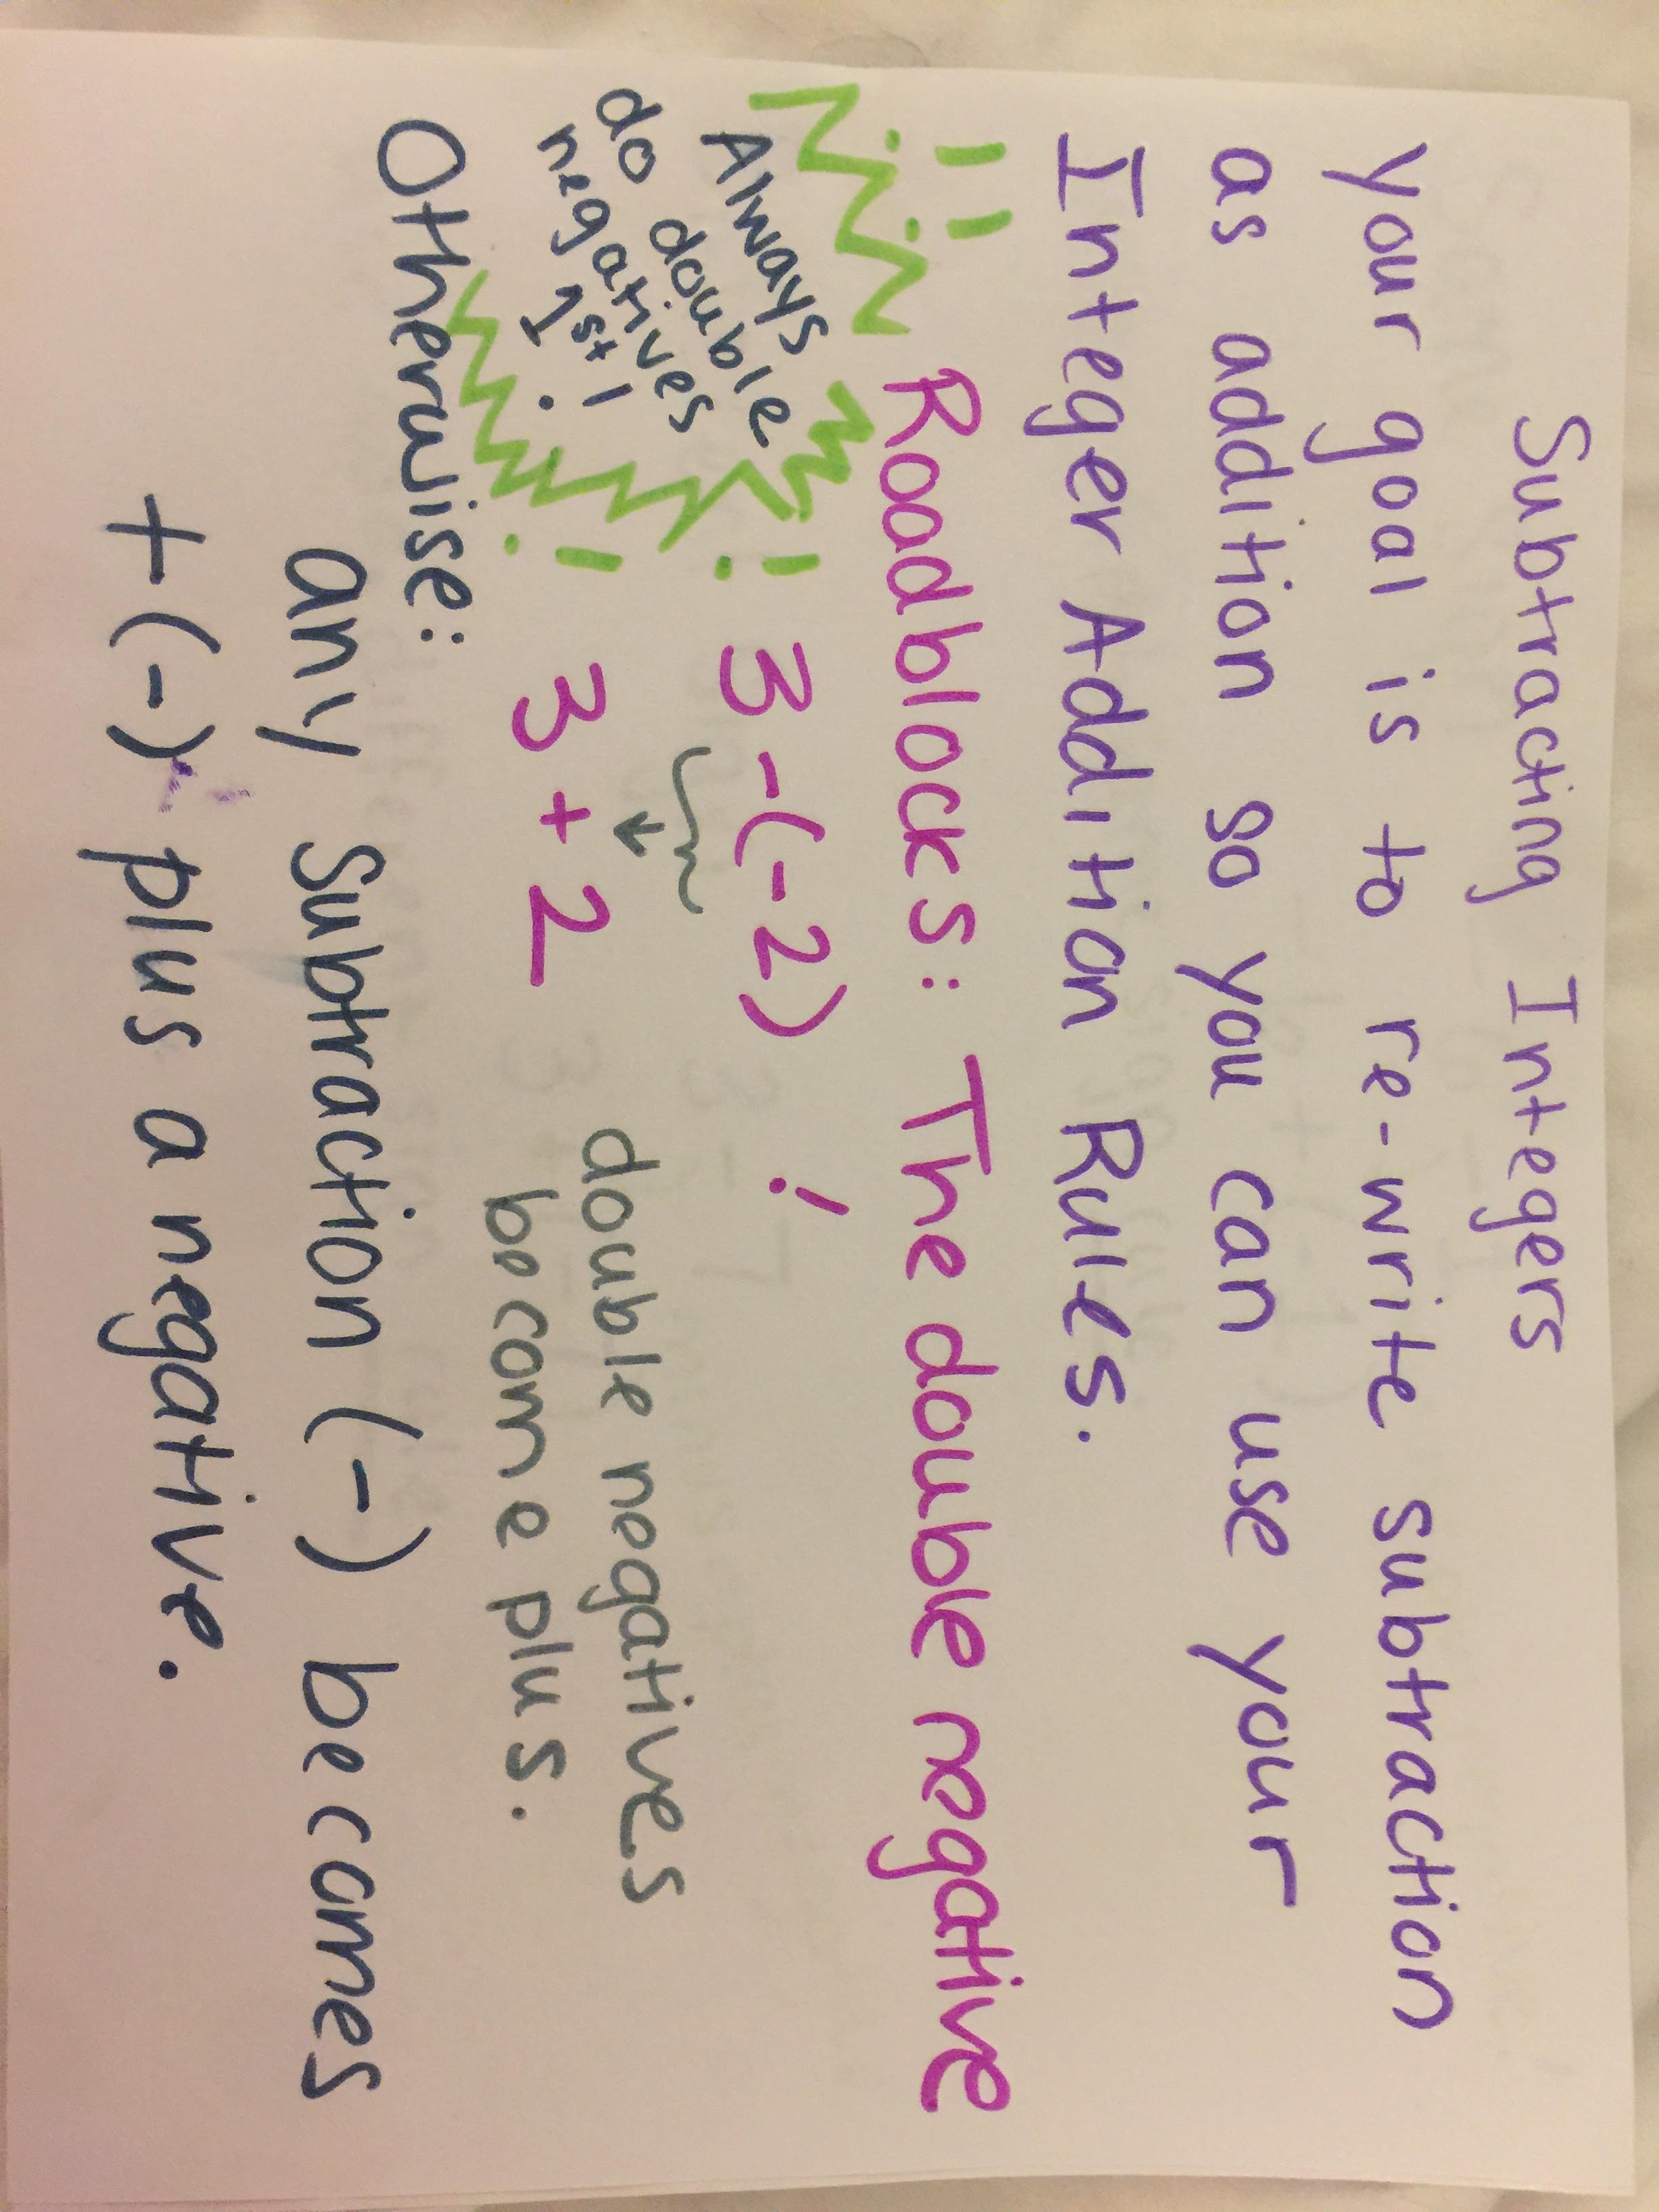 Subtracting Integers
your goal is to re-write subtraction
as addition so you can use your
Integer Addition Rules.
Roadblocks: The double negative
!
Always
do double
negatives
1st!
3-(-2)
3+2
double negatives
become plus.
Otherwise:
any subtraction (-) becomes
+(-) plus a negative.